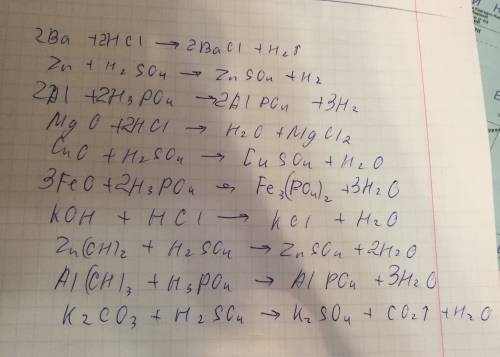 2Ba + 2HCl → 2BaCl + H2↑
Zn + H2SO4 → ZnSO4 + H2
2Al + 2H3PO4 → 2AlPO4 + 3H2
MgO + 2HCl → H2O + MgCl2
CuO + H2SO4 → CuSO4 + H2O
3FeO + 2H3PO4 → Fe3(PO4)2 + 3H2O
KOH + HCl → KCl + H2O
Zn(OH)2 + H2SO4 → ZnSO4 + 2H2O
Al(OH)3 + H3PO4 → AlPO4 + 3H2O
K2CO3 + H2SO4 → K2SO4 + CO2↑ + H2O